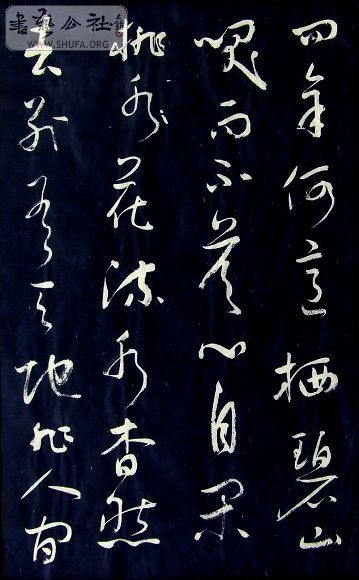 問余何意栖碧山
咲而不答心自閑
桃花流水杳然
去別有天地非人間
公社
WWW.SHUFA.ORG